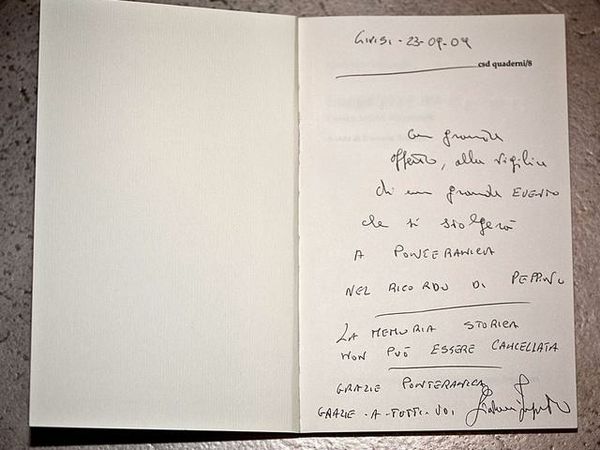 CINISI - 23-09-09
csd quaderni/8
Con grande
affetto, alla vigilia
di un grande EVENTO
che si svolgerà
A PONTERANICA
NEL RICORDO DI PEPPINO
LA MEMORIA STORICA
NON PUÒ ESSERE CANCELLATA
GRAZIE PONTERANICA
GRAZIE - A - TUTTI - VOI